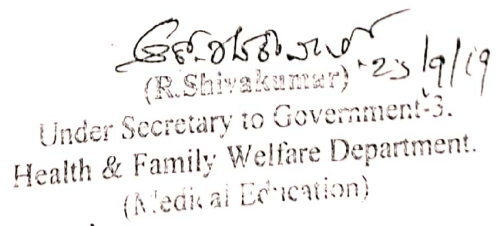 23/9/19
(R.Shivakumar)
Under Secretary to Government-3.
Health & Family Welfare Department.
(Medical Education)